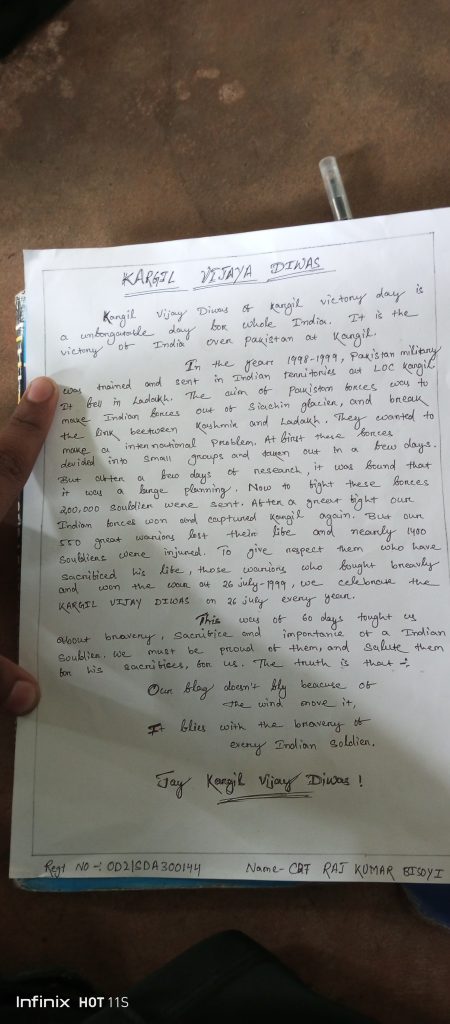 KARGIL VIJAYA DIWAS
Kargil Vijay Diwas of Kargil victory day is
a unforgatable day for whole India. It is the
victory of India over pakistan at Kargil.
In the year 1998-1999, Pakistan military
was trained and sent in Indian territories at LOC Kargil
It fell in Ladakh. The aim of Pakistan forces was to
make Indian forces out of Siachin glacier, and break
the link beetween Kashmir and Ladakh. They wanted to
make a international Problem. At first these forces
devided into small groups and taken out in a few days.
But after a few days of research, it was found that
it was a large planning. Now to fight these forces
200,000 souldier were sent. After a great fight our
Indian forces won and captured Kargil again. But our
550 great warriors lost their life and nearly 1400
souldiers were injured. To give respect them who have
sacrificed his life, those warriors who fought breavly
and won the war at 26 july-1999, we celebrate the
KARGIL VIJAY DIWAS on 26 july every year.
This was of 60 days tought us
about bravery, sacrifice and importance of a Indian
Souldier. We must be proud of them, and salute them
for his sacrifices, for us. The truth is that -:
Our flag doesn't fly beacuse of
the wind move it,
It flies with the bravery of
every Indian soldier.
Jay Kargil Vijay Diwas!
Regt NO -: OD21SDA300144 Name- CDT RAJ KUMAR BISOYI
Infinix HOT 11S